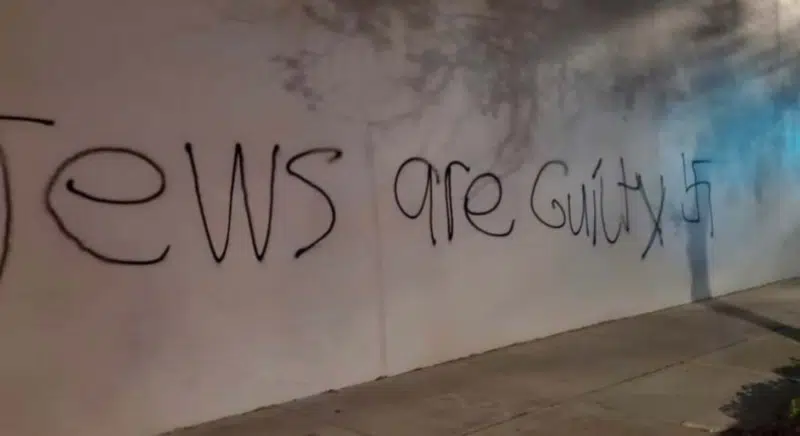 Jews are Guilty 卐